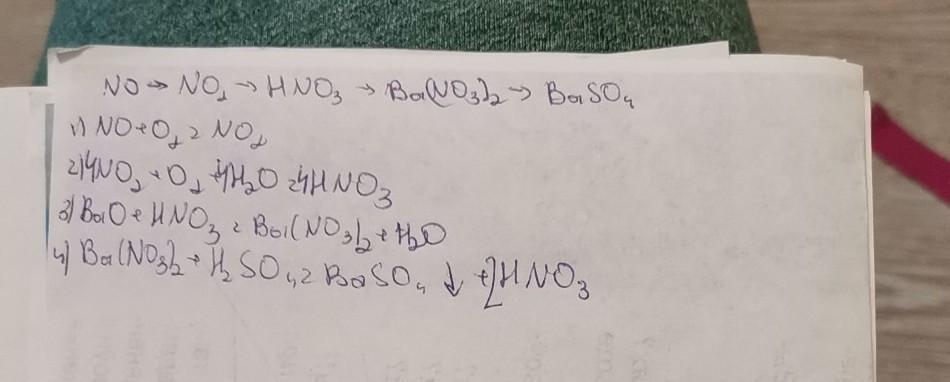 NO → NO₂ → HNO₃ → Ba(NO₃)₂ → BaSO₄
1) NO + O₂ = NO₂
2) 4NO₂ + O₂ + 4H₂O = 4HNO₃
3) BaO + HNO₃ = Ba(NO₃)₂ + H₂O
4) Ba(NO₃)₂ + H₂SO₄ = BaSO₄ ↓ + 2HNO₃